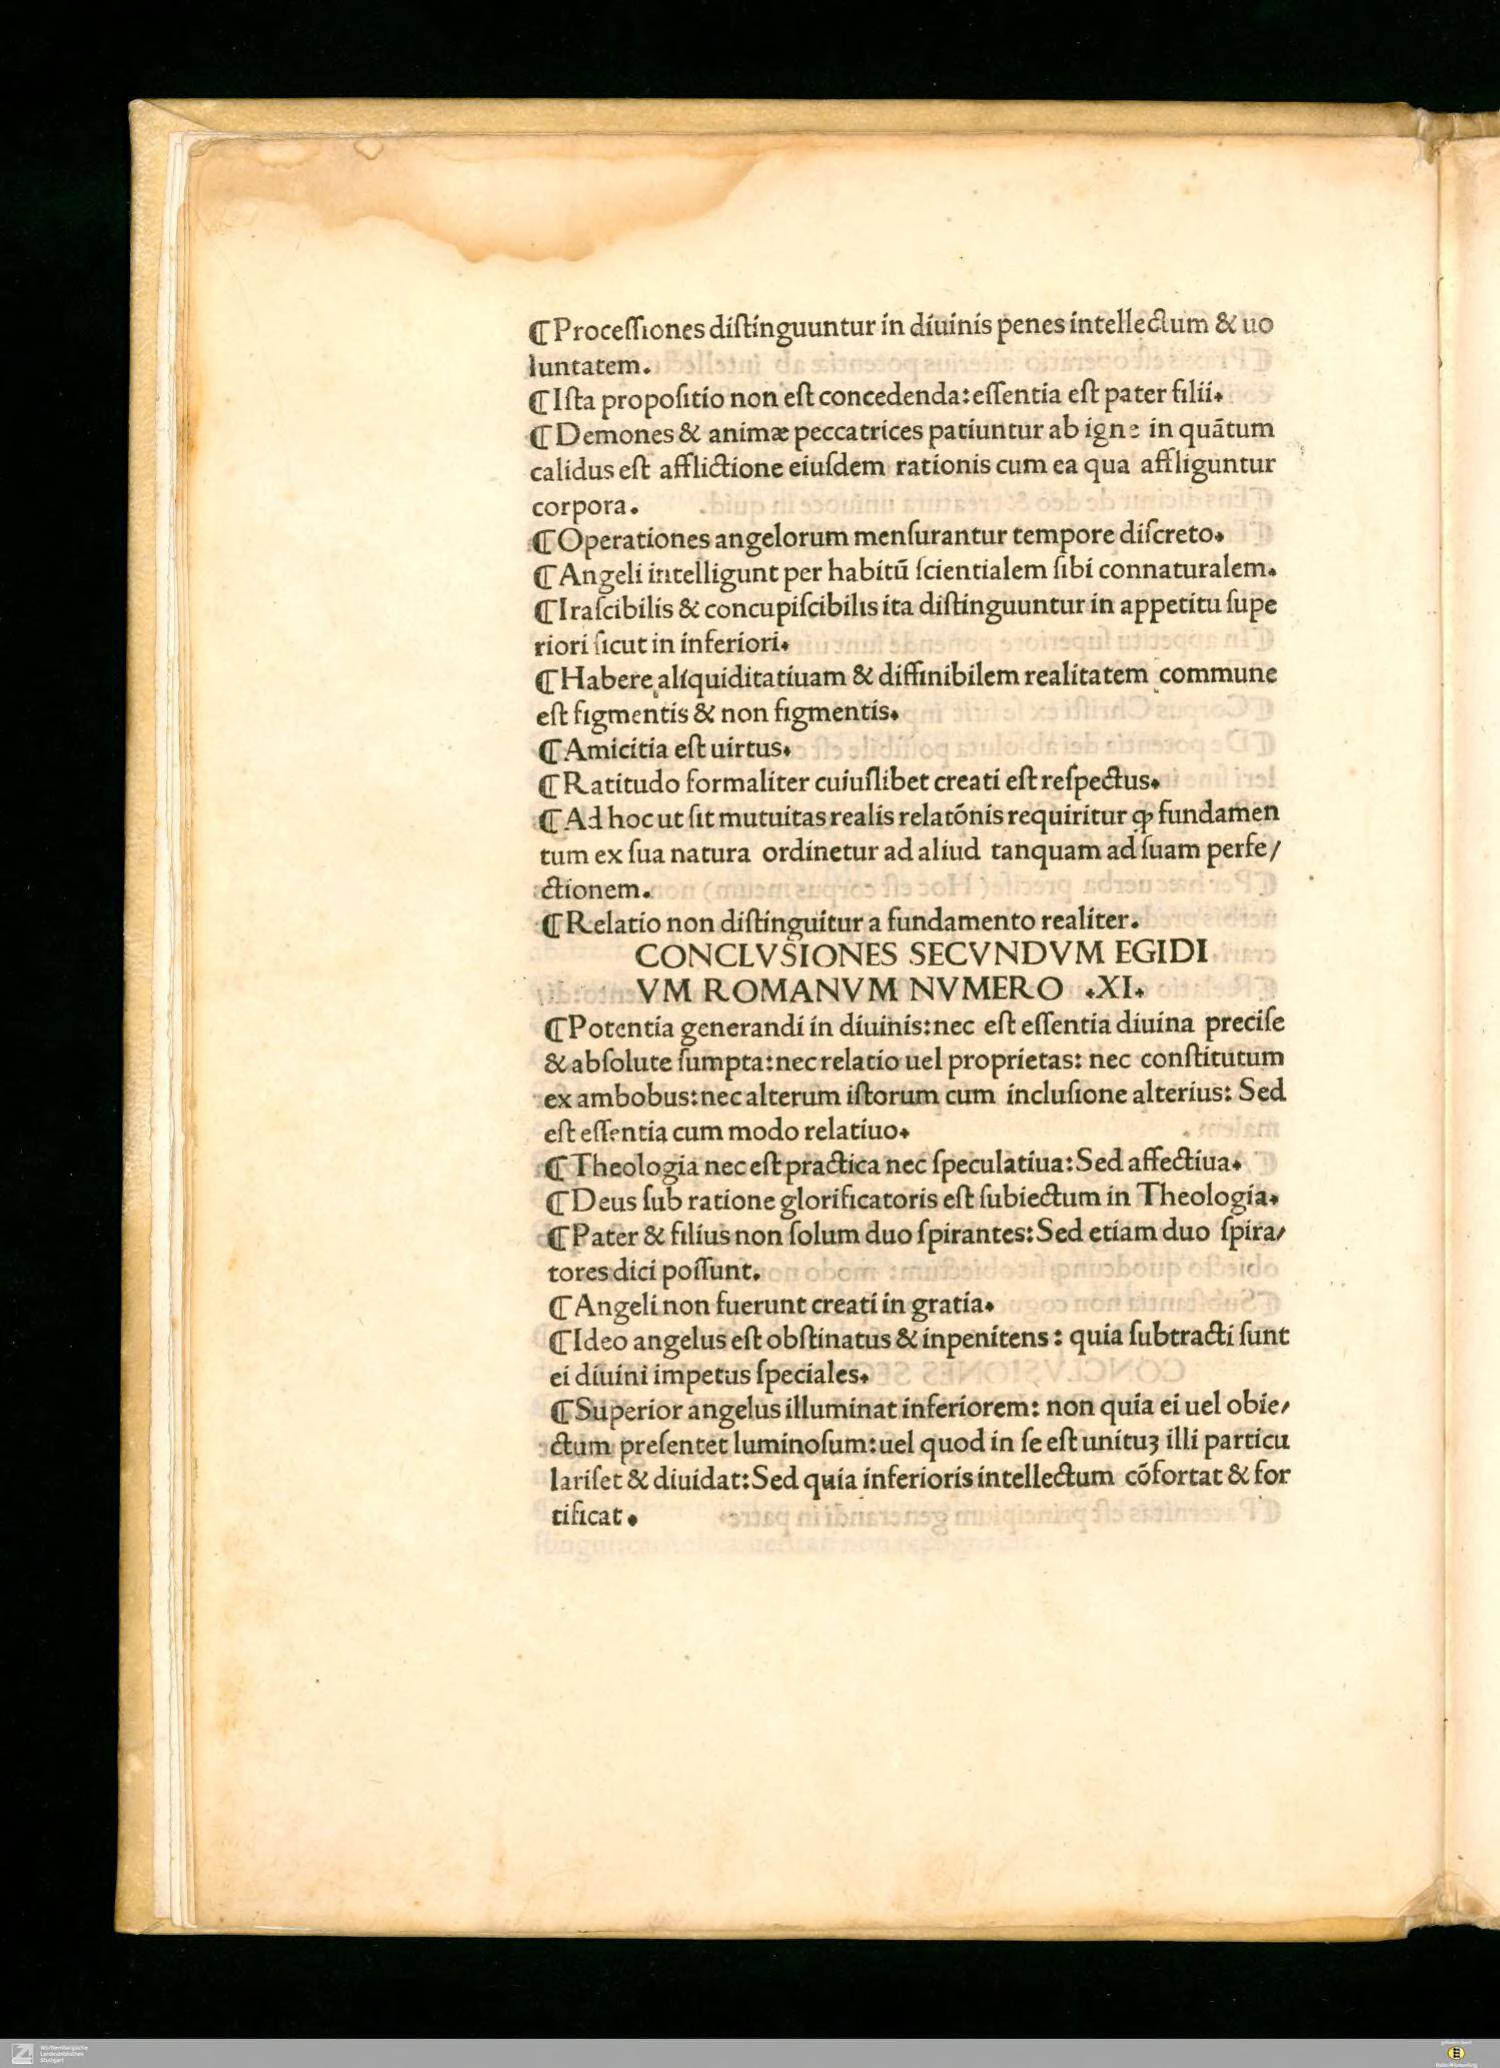 ¶Proceſſiones diſtinguuntur in diuinis penes intellectum & uo
luntatem.
¶Iſta propoſitio non eſt concedenda: eſſentia eſt pater filii.
¶Demones & animæ peccatrices patiuntur ab igne in quãtum
calidus eſt afflictione eiuſdem rationis cum ea qua affliguntur
corpora.
¶Operationes angelorum menſurantur tempore diſcreto.
¶Angeli intelligunt per habitũ ſcientialem ſibi connaturalem.
¶Iraſcibilis & concupiſcibilis ita diſtinguuntur in appetitu ſupe
riori ſicut in inferiori.
¶Habere aliquiditatiuam & diffinibilem realitatem commune
eſt figmentis & non figmentis.
¶Amicitia eſt uirtus.
¶Ratitudo formaliter cuiuſlibet creati eſt reſpectus.
¶Ad hoc ut ſit mutuitas realis relatõnis requiritur ꝙ fundamen
tum ex ſua natura ordinetur ad aliud tanquam ad ſuam perfe/
ctionem.
¶Relatio non diſtinguitur a fundamento realiter.
CONCLVSIONES SECVNDVM EGIDI
VM ROMANVM NVMERO .XI.
¶Potentia generandi in diuinis: nec eſt eſſentia diuina preciſe
& abſolute ſumpta: nec relatio uel proprietas: nec conſtitutum
ex ambobus: nec alterum iſtorum cum incluſione alterius: Sed
eſt eſſentia cum modo relatiuo.
¶Theologia nec eſt practica nec ſpeculatiua: Sed affectiua.
¶Deus ſub ratione glorificatoris eſt ſubiectum in Theologia.
¶Pater & filius non ſolum duo ſpirantes: Sed etiam duo ſpira/
tores dici poſſunt.
¶Angeli non fuerunt creati in gratia.
¶Ideo angelus eſt obſtinatus & inpenitens: quia ſubtracti ſunt
ei diuini impetus ſpeciales.
¶Superior angelus illuminat inferiorem: non quia ei uel obie/
ctum preſentet luminoſum: uel quod in ſe eſt unituꝫ illi particu
lariſet & diuidat: Sed quia inferioris intellectum cõfortat & for
tificat.
Württembergische
Landesbibliothek
Stuttgart